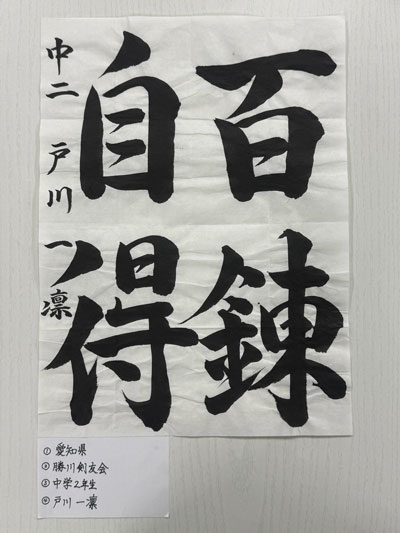 百錬
自得
中二 戸川 一凛
①愛知県
②勝川剣友会
③中学2年生
④戸川 一凛